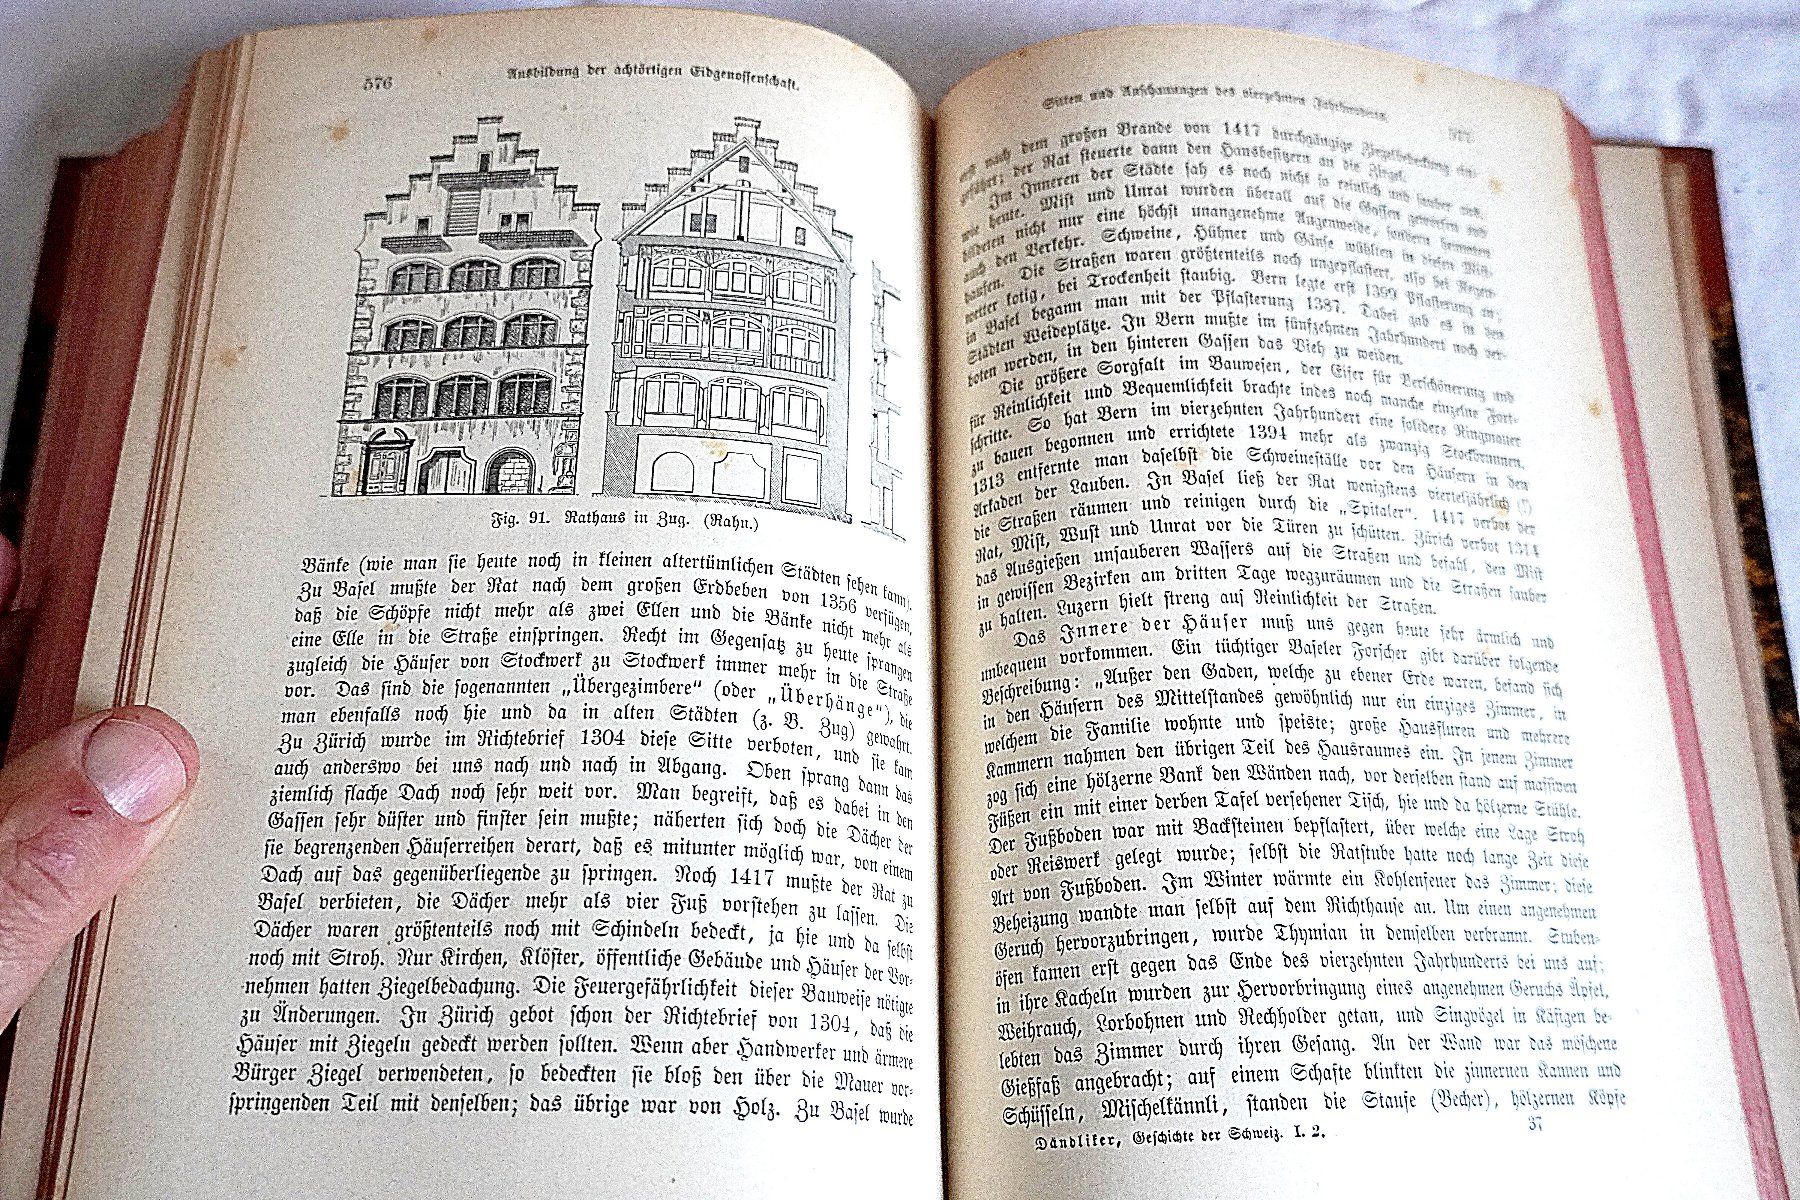 576
Ausbildung der achtörtigen Eidgenossenschaft.
Fig. 91. Rathaus in Zug. (Rahn.)
Bänke (wie man sie heute noch in kleinen altertümlichen Städten sehen kann).
Zu Basel mußte der Rat nach dem großen Erdbeben von 1356 verfügen,
daß die Schöpfe nicht mehr als zwei Ellen und die Bänke nicht mehr als
eine Elle in die Straße einspringen. Recht im Gegensatz zu heute sprangen
zugleich die Häuser von Stockwerk zu Stockwerk immer mehr in die Straße
vor. Das sind die sogenannten „Übergezimbere“ (oder „Überhänge“), die
man ebenfalls noch hie und da in alten Städten (z. B. Zug) gewahrt.
Zu Zürich wurde im Richtebrief 1304 diese Sitte verboten, und sie kam
auch anderswo bei uns nach und nach in Abgang. Oben sprang dann das
ziemlich flache Dach noch sehr weit vor. Man begreift, daß es dabei in den
Gassen sehr düster und finster sein mußte; näherten sich doch die Dächer der
sie begrenzenden Häuserreihen derart, daß es mitunter möglich war, von einem
Dach auf das gegenüberliegende zu springen. Noch 1417 mußte der Rat zu
Basel verbieten, die Dächer mehr als vier Fuß vorstehen zu lassen. Die
Dächer waren größtenteils noch mit Schindeln bedeckt, ja hie und da selbst
noch mit Stroh. Nur Kirchen, Klöster, öffentliche Gebäude und Häuser der Vor-
nehmen hatten Ziegelbedachung. Die Feuergefährlichkeit dieser Bauweise nötigte
zu Änderungen. In Zürich gebot schon der Richtebrief von 1304, daß die
Häuser mit Ziegeln gedeckt werden sollten. Wenn aber Handwerker und ärmere
Bürger Ziegel verwendeten, so bedeckten sie bloß den über die Mauer vor-
springenden Teil mit denselben; das übrige war von Holz. Zu Basel wurde
Sitten und Anschauungen des vierzehnten Jahrhunderts.
577
erst nach dem großen Brande von 1417 durchgängige Ziegelbedeckung ein-
geführt; der Rat steuerte dann den Hausbesitzern an die Ziegel.
Im Inneren der Städte sah es noch nicht so reinlich und sauber aus,
wie heute. Mist und Unrat wurden überall auf die Gassen geworfen und
bildeten nicht nur eine höchst unangenehme Augenweide, sondern hemmten
auch den Verkehr. Schweine, Hühner und Gänse wühlten in diesen Mist-
haufen. Die Straßen waren größtenteils noch ungepflastert, also bei Regen-
wetter kotig, bei Trockenheit staubig. Bern legte erst 1399 Pflasterung an;
in Basel begann man mit der Pflasterung 1387. Dabei gab es in den
Städten Weideplätze. In Bern mußte im fünfzehnten Jahrhundert noch ver-
boten werden, in den hinteren Gassen das Vieh zu weiden.
Die größere Sorgfalt im Bauwesen, der Eifer für Verschönerung und
für Reinlichkeit und Bequemlichkeit brachte indes noch manche einzelne Fort-
schritte. So hat Bern im vierzehnten Jahrhundert eine solidere Ringmauer
zu bauen begonnen und errichtete 1394 mehr als zwanzig Stockbrunnen.
1313 entfernte man daselbst die Schweineställe vor den Häusern in den
Arkaden der Lauben. In Basel ließ der Rat wenigstens vierteljährlich (!)
die Straßen räumen und reinigen durch die „Spitaler“. 1417 verbot der
Rat, Mist, Wust und Unrat vor die Türen zu schütten. Zürich verbot 1314
das Ausgießen unsauberen Wassers auf die Straßen und befahl, den Mist
in gewissen Bezirken am dritten Tage wegzuräumen und die Straßen sauber
zu halten. Luzern hielt streng auf Reinlichkeit der Straßen.
Das Innere der Häuser muß uns gegen heute sehr ärmlich und
unbequem vorkommen. Ein tüchtiger Baseler Forscher gibt darüber folgende
Beschreibung: „Außer den Gaden, welche zu ebener Erde waren, befand sich
in den Häusern des Mittelstandes gewöhnlich nur ein einziges Zimmer, in
welchem die Familie wohnte und speiste; große Hausfluren und mehrere
Kammern nahmen den übrigen Teil des Hausraumes ein. In jenem Zimmer
zog sich eine hölzerne Bank den Wänden nach, vor derselben stand auf massiven
Füßen ein mit einer derben Tafel versehener Tisch, hie und da hölzerne Stühle.
Der Fußboden war mit Backsteinen bepflastert, über welche eine Lage Stroh
oder Reiswerk gelegt wurde; selbst die Ratstube hatte noch lange Zeit diese
Art von Fußboden. Im Winter wärmte ein Kohlenfeuer das Zimmer; diese
Beheizung wandte man selbst auf dem Richthause an. Um einen angenehmen
Geruch hervorzubringen, wurde Thymian in demselben verbrannt. Stuben-
öfen kamen erst gegen das Ende des vierzehnten Jahrhunderts bei uns auf;
in ihre Kacheln wurden zur Hervorbringung eines angenehmen Geruchs Äpfel,
Weihrauch, Lorbohnen und Reckholder getan, und Singvögel in Käfigen be-
lebten das Zimmer durch ihren Gesang. An der Wand war das möschene
Gießfaß angebracht; auf einem Schafte blinkten die zinnernen Kannen und
Schüsseln, Mischelkännli, standen die Staufe (Becher), hölzernen Köpfe
Dändliker, Geschichte der Schweiz. I. 2.
37